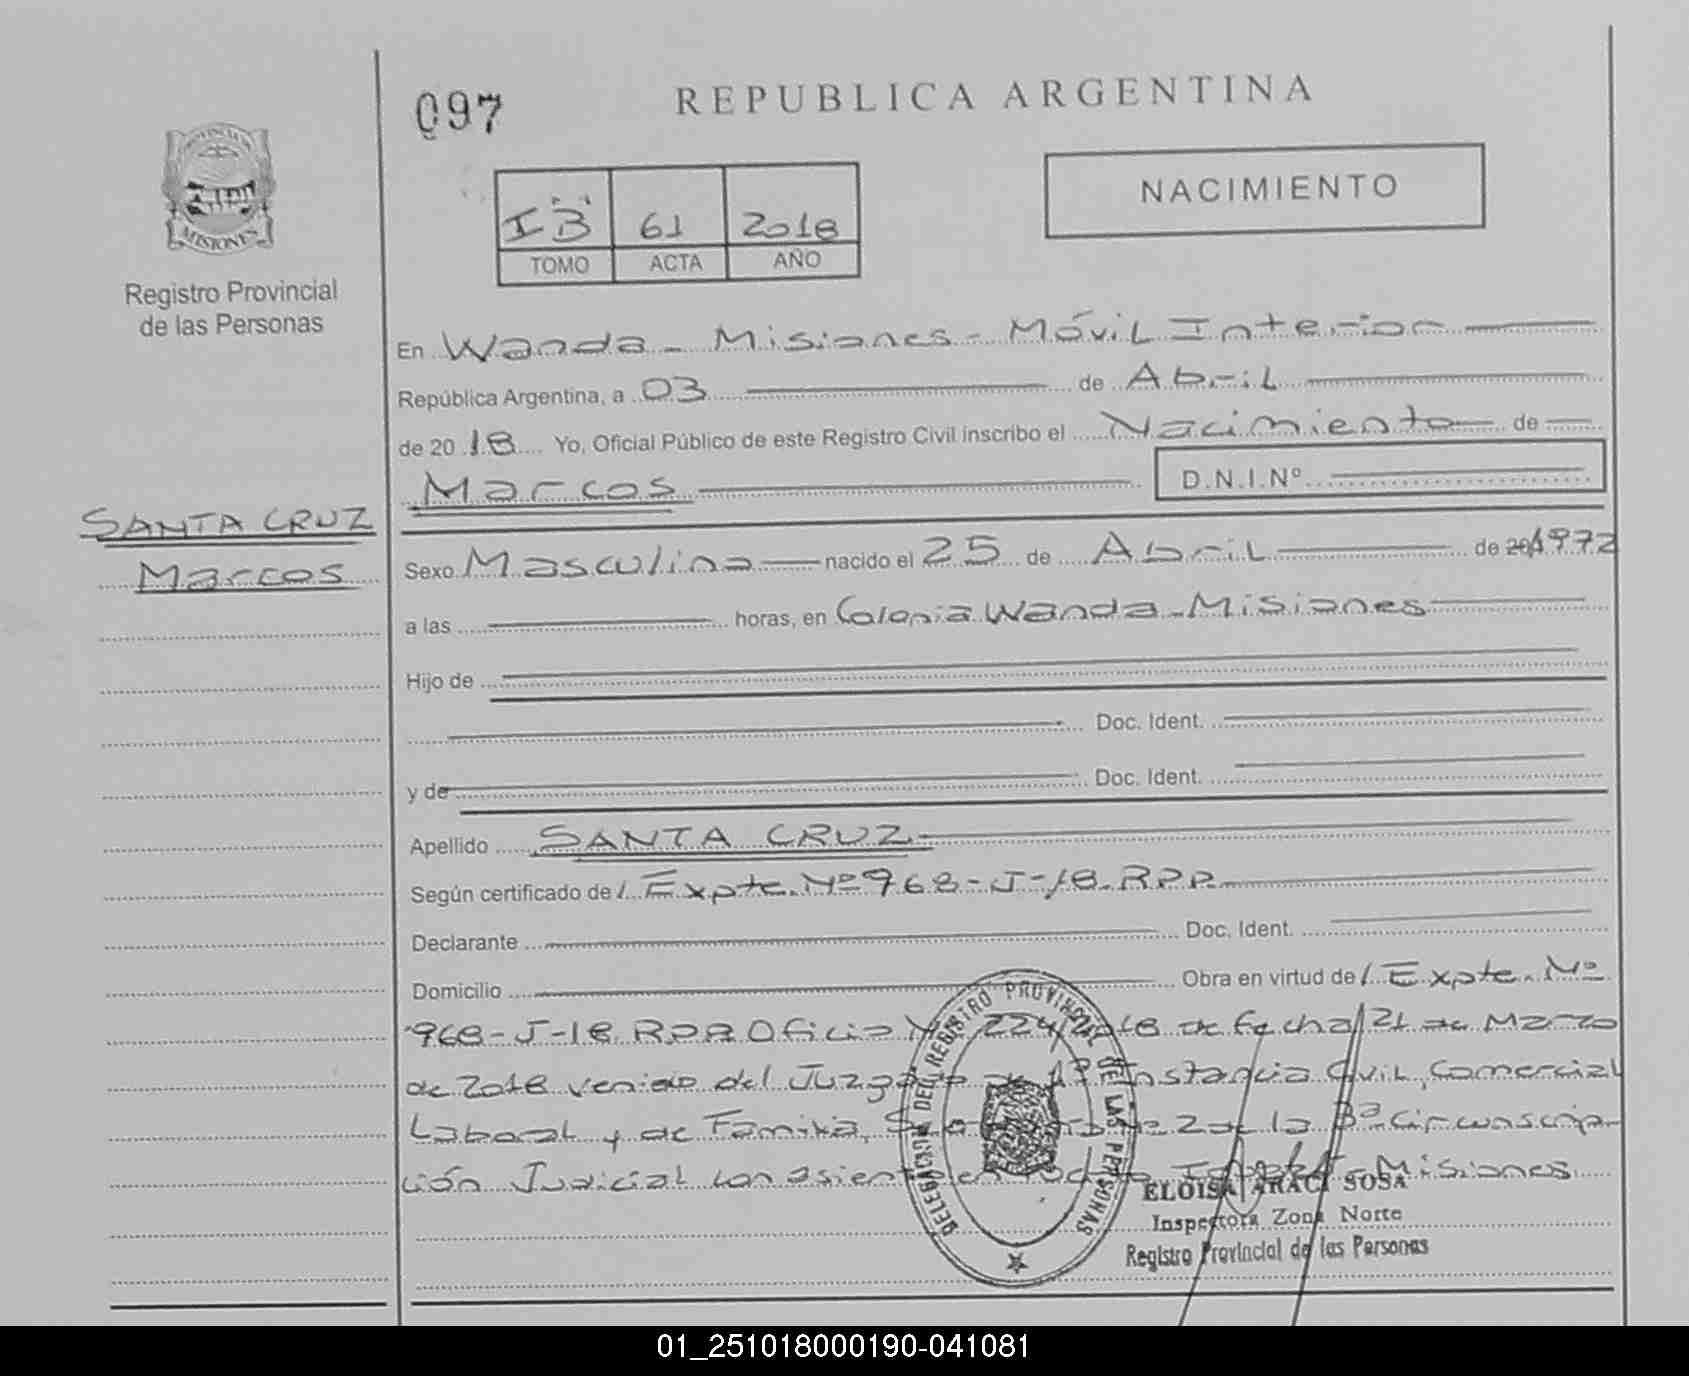 097
REPUBLICA ARGENTINA
NACIMIENTO
I "B" 61 2018
TOMO ACTA AÑO
MISIONES
Registro Provincial
de las Personas
En Wanda - Misiones - Móvil Interior
República Argentina, a 03 de Abril
de 2018 Yo, Oficial Público de este Registro Civil inscribo el Nacimiento de
Marcos D.N.I.Nº
SANTA CRUZ
Marcos
Sexo Masculino nacido el 25 de Abril de 201972
a las horas, en Colonia Wanda - Misiones
Hijo de
Doc. Ident.
y de Doc. Ident.
Apellido SANTA CRUZ
Según certificado de /. Expte. Nº 968-J-18-RPP
Declarante Doc. Ident.
Domicilio Obra en virtud de /. Expte. Nº
968-J-18 Oficio 224 de fecha 21 de Marzo
de 2018 venido del Juzgado de 1ª Instancia Civil, Comercial
Laboral y de Familia, de la 3ª Circunscrip-
ción Judicial con asiento en Misiones
DELEGACION DEL REGISTRO PROVINCIAL DE LAS PERSONAS
ELOISA ARACI SOSA
Inspectora Zona Norte
Registro Provincial de las Personas
01_251018000190-041081